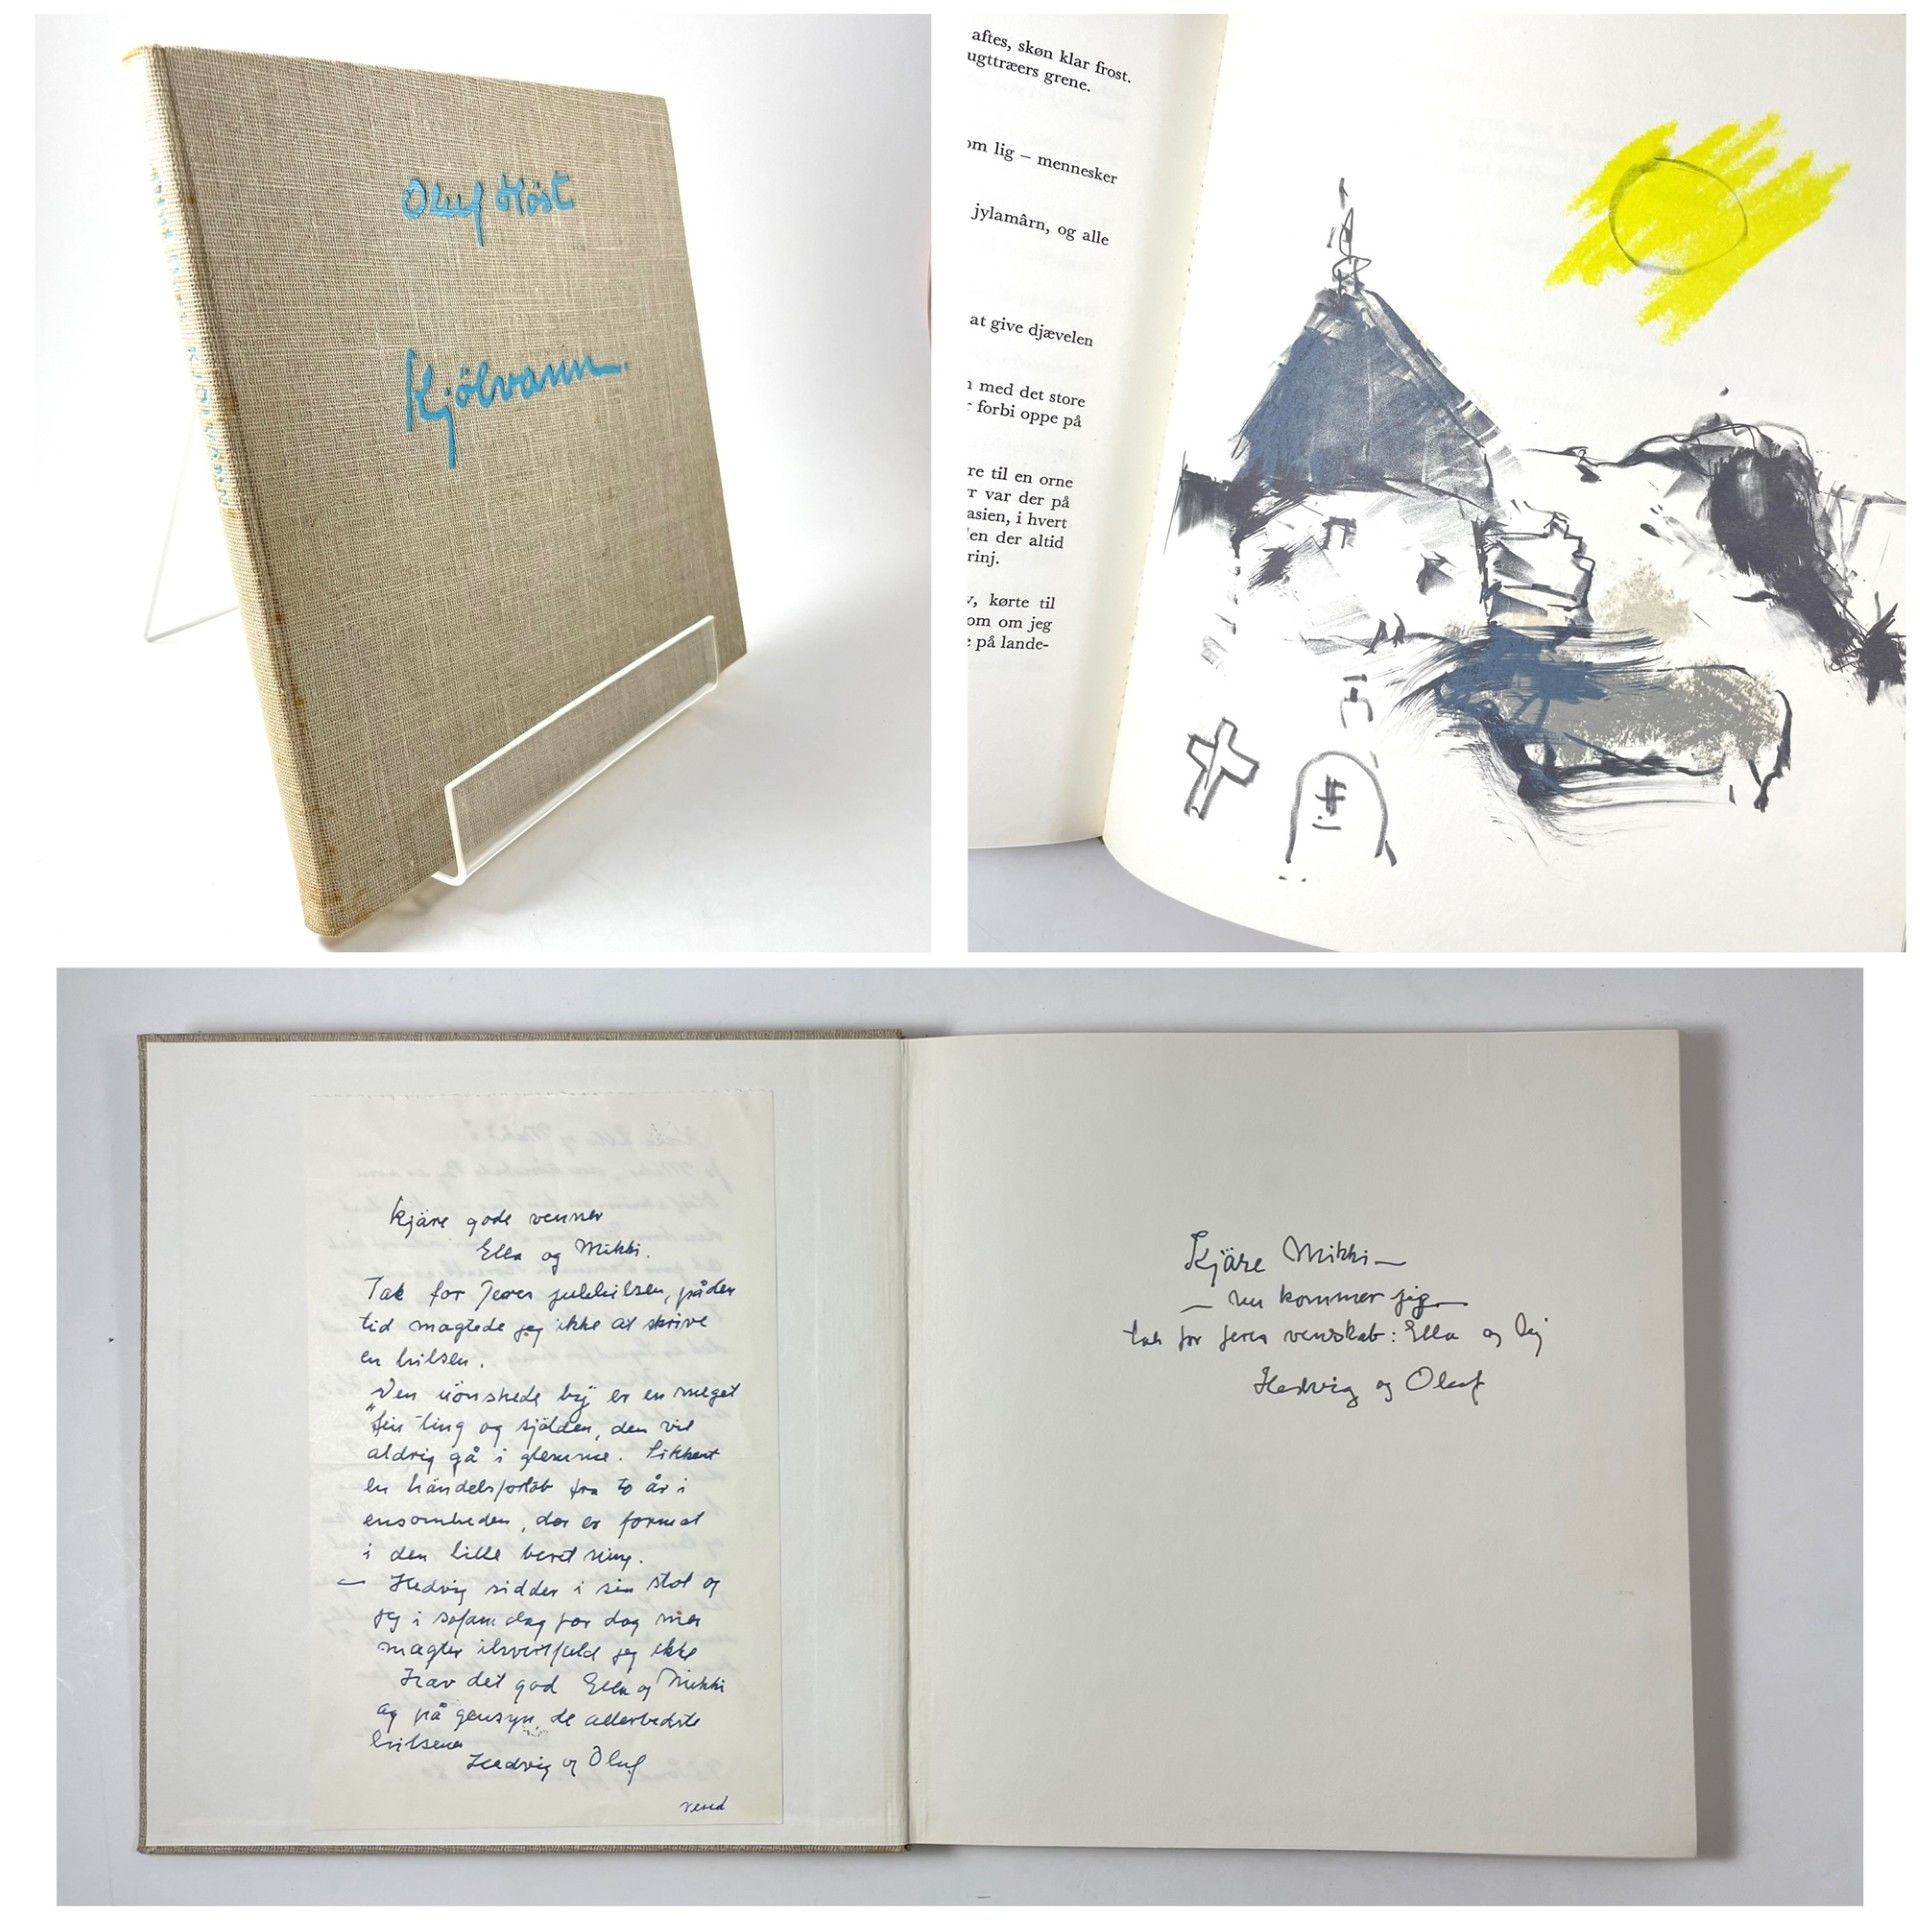 Oluf Høst
Kjölvann.
aftes, skøn klar frost.
ugttræers grene.
om lig – mennesker
jylamârn, og alle
at give djævelen
med det store
forbi oppe på
re til en orne
r var der på
asien, i hvert
en der altid
rinj.
v, kørte til
om om jeg
e på lande-
Kjäre gode venner
Ella og Mikki.
Tak for Jeres julehilsen, på den
tid magtede jeg ikke at skrive
en hilsen.
Den uönskede by er en meget
fin ting og själden, den vil
aldrig gå i glemme. Sikkert
en händelsforløb fra to år i
ensomheden, der er formet
i den lille beretning.
— Hedvig sidder i sin stol og
jeg i sofaen dag for dag mer
magter jeg ikke
Hav det god Ella og Mikki
og på gensyn, de allerbedste
hilsener
Hedvig og Oluf
vend
Kjäre Mikki —
— nu kommer jeg —
tak for jeres venskab: Ella og Dig
Hedvig og Oluf